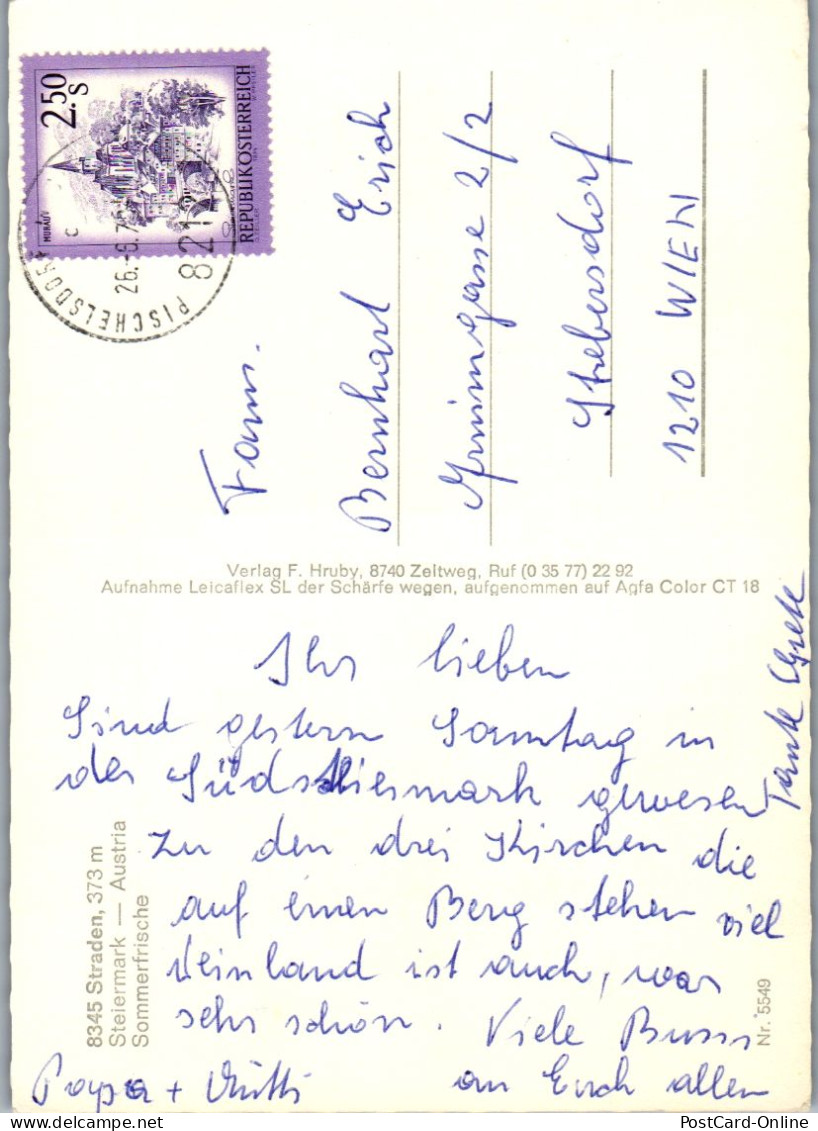 2.50
S
MURAU
REPUBLIK ÖSTERREICH
PISCHELSDORF
c
26.-9.75
821
Fam.
Bernhart Erich
Grimmgasse 2/2
Strebersdorf
1210 WIEN
Verlag F. Hruby, 8740 Zeltweg, Ruf (0 35 77) 22 92
Aufnahme Leicaflex SL der Schärfe wegen, aufgenommen auf Agfa Color CT 18
Ihr lieben
Sind gestern Sonntag in
der Südsteiermark gewesen
zu den drei Kirchen die
auf einen Berg stehen viel
Weinland ist auch, war
sehr schön. Viele Bussi
an Euch allen
Papa + Mutti
Tante Grete
8345 Straden, 373 m
Steiermark — Austria
Sommerfrische
Nr. 5549
PostCard-Online